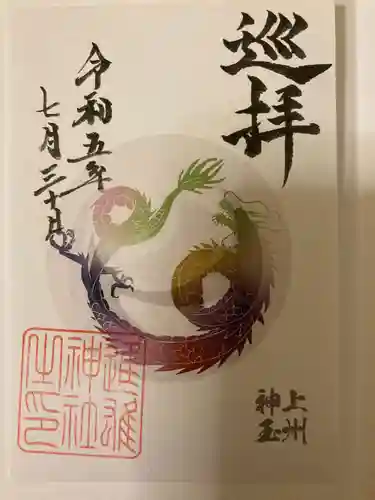 巡拝
令和五年
七月三十日
上州
神玉
進雄
神社
之印